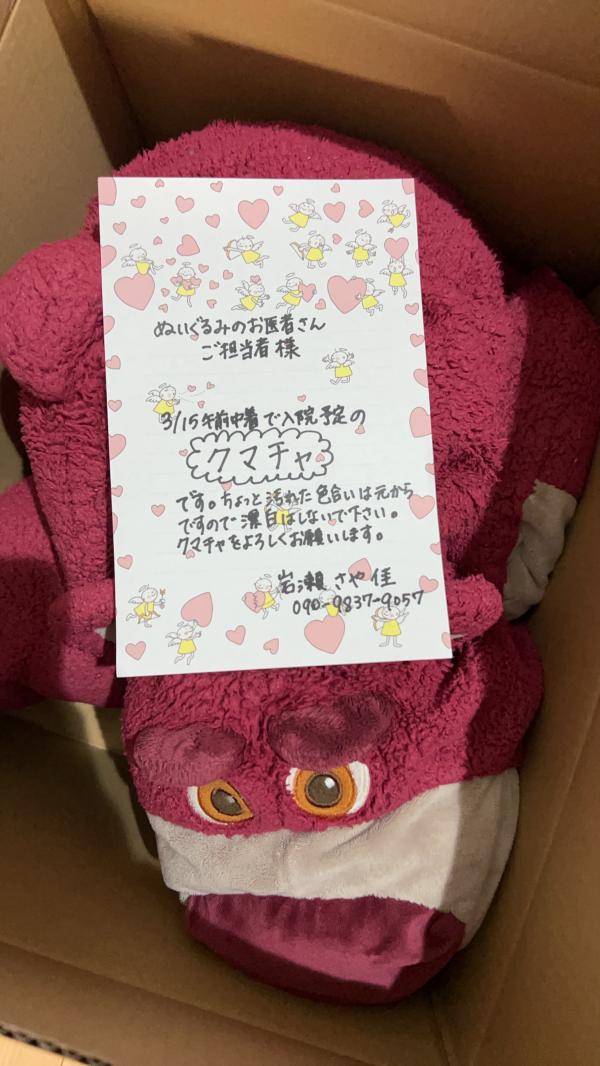 ぬいぐるみのお医者さん
ご担当者 様
3/15午前中着で入院予定の
クマチャ
です。ちょっと汚れた色合いは元から
ですので漂白はしないで下さい。
クマチャをよろしくお願いします。
岩瀬 さや佳
090-9837-9057